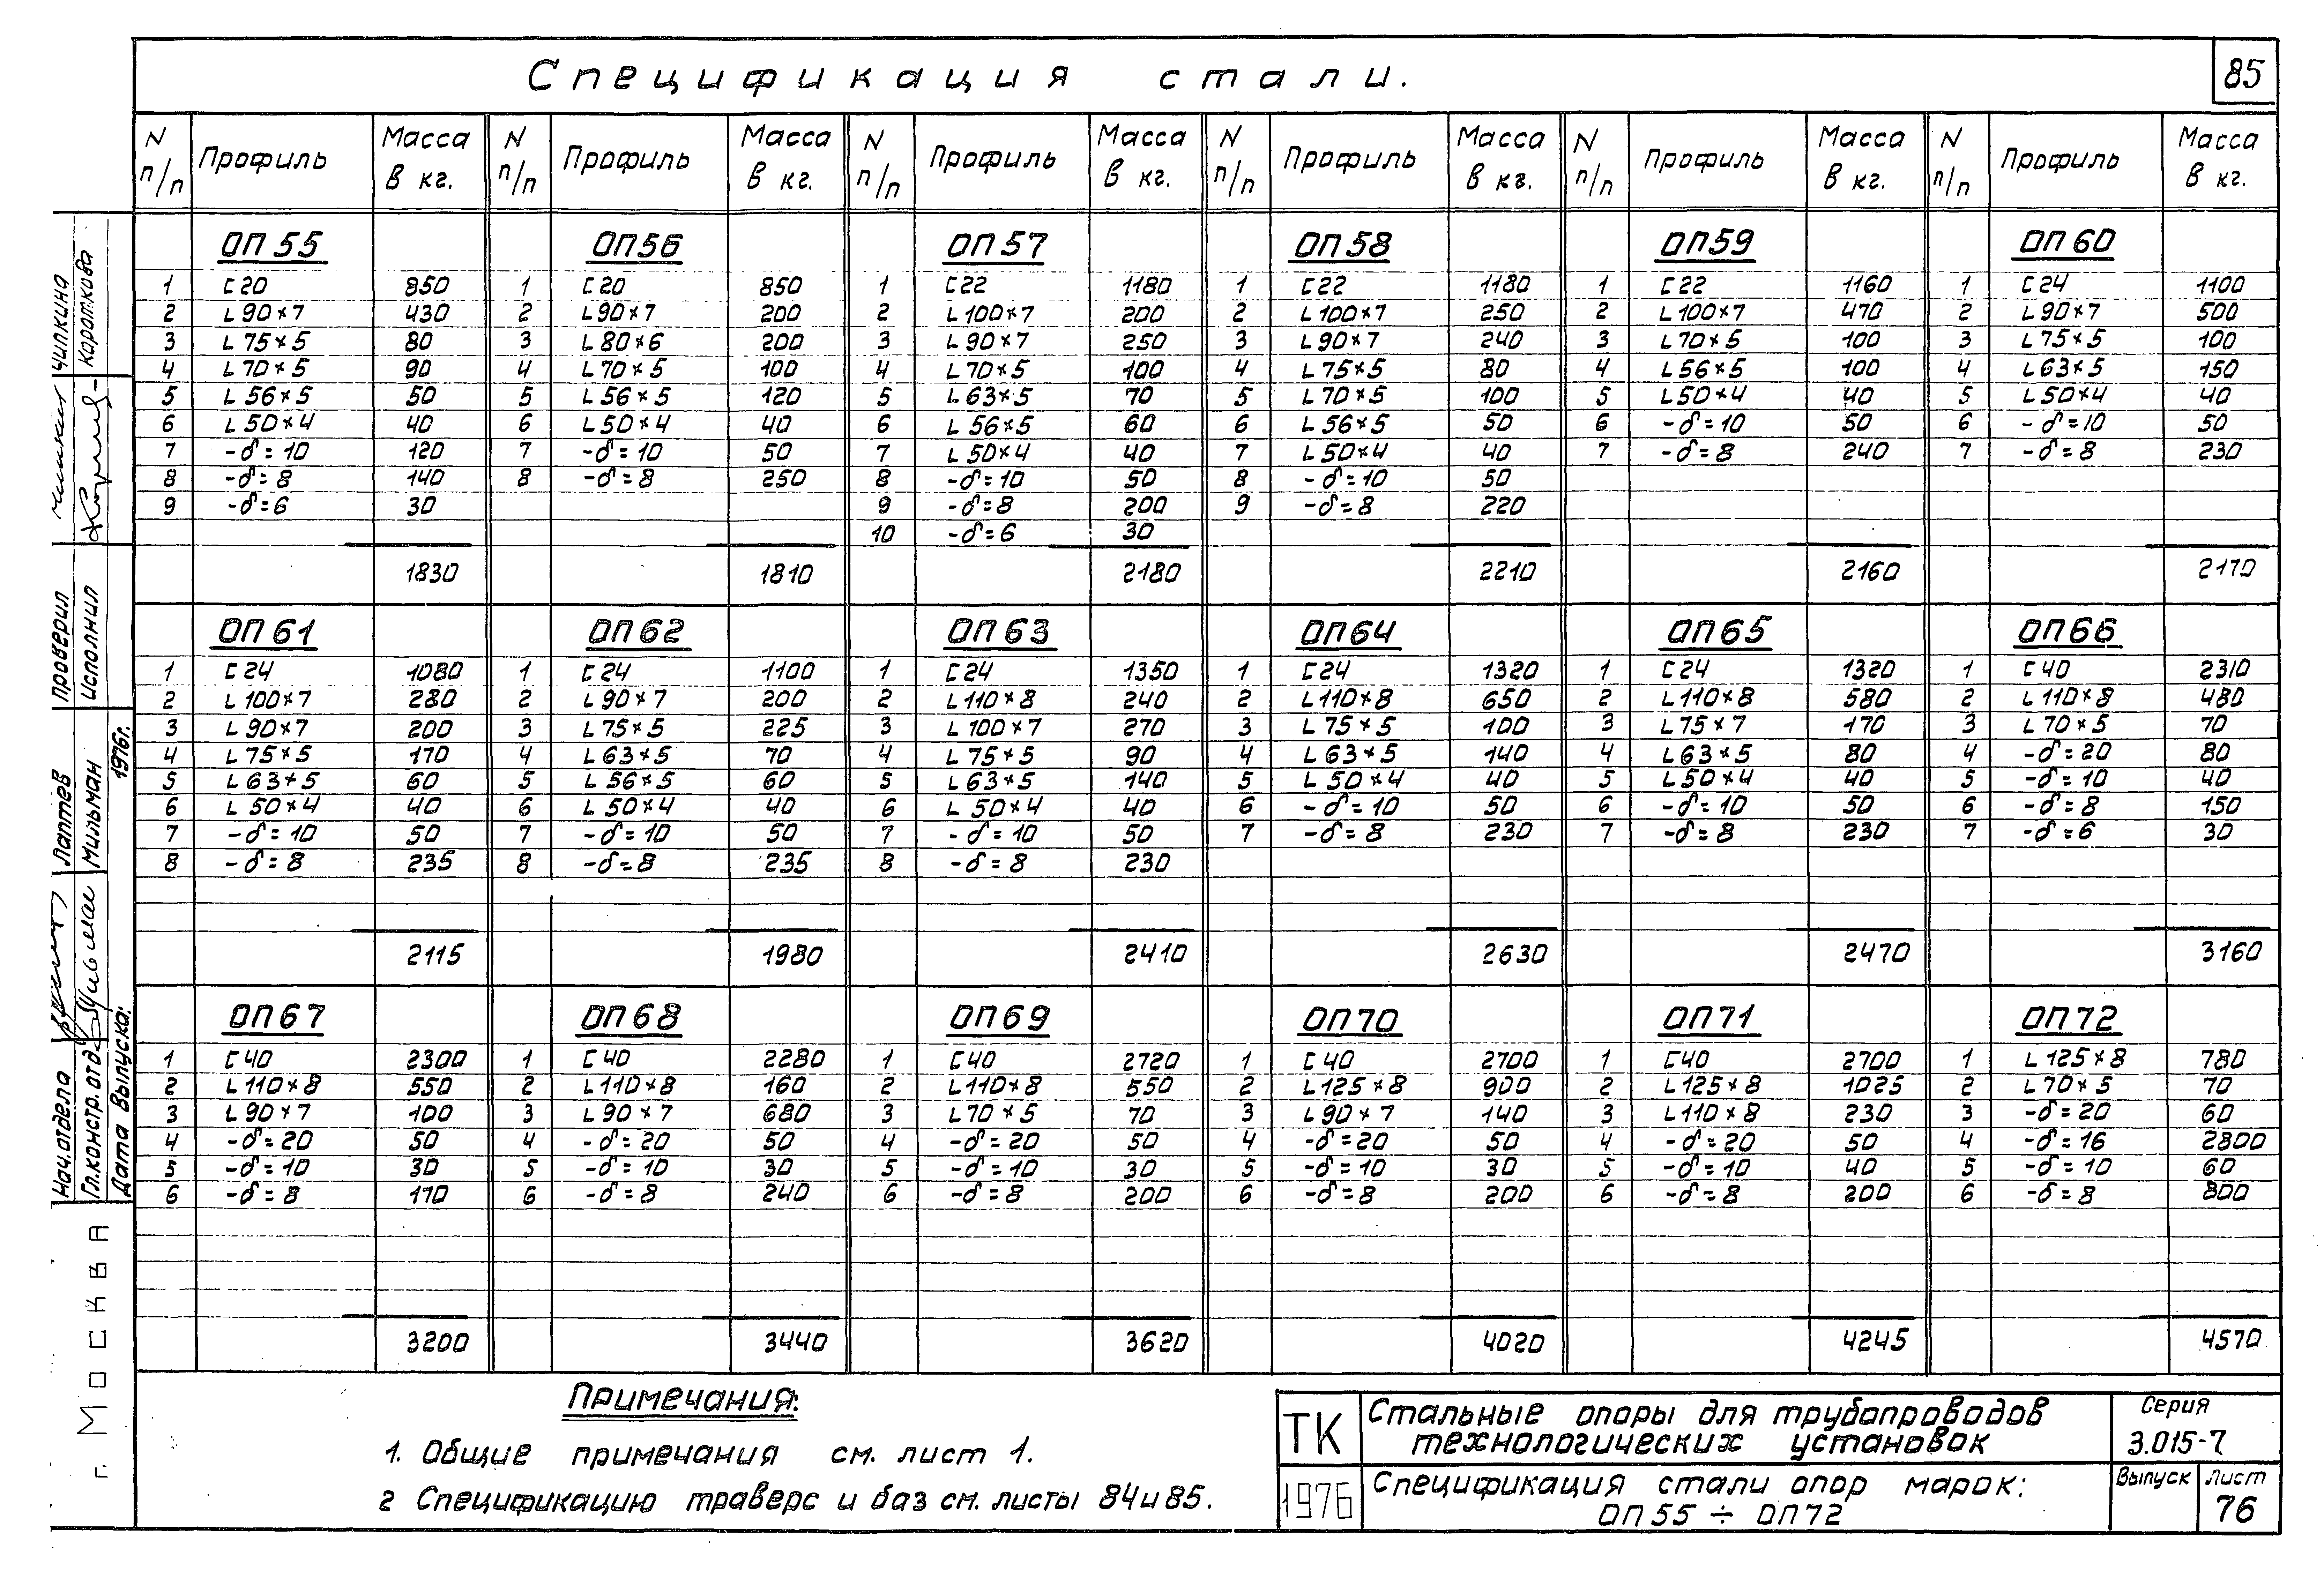 Спецификация стали.
85
N п/п Профиль Масса в кг. N п/п Профиль Масса в кг. N п/п Профиль Масса в кг. N п/п Профиль Масса в кг. N п/п Профиль Масса в кг. N п/п Профиль Масса в кг.
ОП55 ОП56 ОП57 ОП58 ОП59 ОП60
1 [20 850 1 [20 850 1 [22 1180 1 [22 1180 1 [22 1160 1 [24 1100
2 L90×7 430 2 L90×7 200 2 L100×7 200 2 L100×7 250 2 L100×7 470 2 L90×7 500
3 L75×5 80 3 L80×6 200 3 L90×7 250 3 L90×7 240 3 L70×5 100 3 L75×5 100
4 L70×5 90 4 L70×5 100 4 L70×5 100 4 L75×5 80 4 L56×5 100 4 L63×5 150
5 L56×5 50 5 L56×5 120 5 L63×5 70 5 L70×5 100 5 L50×4 40 5 L50×4 40
6 L50×4 40 6 L50×4 40 6 L56×5 60 6 L56×5 50 6 -δ=10 50 6 -δ=10 50
7 -δ=10 120 7 -δ=10 50 7 L50×4 40 7 L50×4 40 7 -δ=8 240 7 -δ=8 230
8 -δ=8 140 8 -δ=8 250 8 -δ=10 50 8 -δ=10 50
9 -δ=6 30 9 -δ=8 200 9 -δ=8 220
10 -δ=6 30
1830 1810 2180 2210 2160 2170
ОП61 ОП62 ОП63 ОП64 ОП65 ОП66
1 [24 1080 1 [24 1100 1 [24 1350 1 [24 1320 1 [24 1320 1 [40 2310
2 L100×7 280 2 L90×7 200 2 L110×8 240 2 L110×8 650 2 L110×8 580 2 L110×8 480
3 L90×7 200 3 L75×5 225 3 L100×7 270 3 L75×5 100 3 L75×7 170 3 L70×5 70
4 L75×5 170 4 L63×5 70 4 L75×5 90 4 L63×5 140 4 L63×5 80 4 -δ=20 80
5 L63×5 60 5 L56×5 60 5 L63×5 140 5 L50×4 40 5 L50×4 40 5 -δ=10 40
6 L50×4 40 6 L50×4 40 6 L50×4 40 6 -δ=10 50 6 -δ=10 50 6 -δ=8 150
7 -δ=10 50 7 -δ=10 50 7 -δ=10 50 7 -δ=8 230 7 -δ=8 230 7 -δ=6 30
8 -δ=8 235 8 -δ=8 235 8 -δ=8 230
2115 1980 2410 2630 2470 3160
ОП67 ОП68 ОП69 ОП70 ОП71 ОП72
1 [40 2300 1 [40 2280 1 [40 2720 1 [40 2700 1 [40 2700 1 L125×8 780
2 L110×8 550 2 L110×8 160 2 L110×8 550 2 L125×8 900 2 L125×8 1025 2 L70×5 70
3 L90×7 100 3 L90×7 680 3 L70×5 70 3 L90×7 140 3 L110×8 230 3 -δ=20 60
4 -δ=20 50 4 -δ=20 50 4 -δ=20 50 4 -δ=20 50 4 -δ=20 50 4 -δ=16 2800
5 -δ=10 30 5 -δ=10 30 5 -δ=10 30 5 -δ=10 30 5 -δ=10 40 5 -δ=10 60
6 -δ=8 170 6 -δ=8 240 6 -δ=8 200 6 -δ=8 200 6 -δ=8 200 6 -δ=8 800
3200 3440 3620 4020 4245 4570
Примечания:
1. Общие примечания см. лист 1.
2 Спецификацию траверс и баз см. листы 84 и 85.
ТК
1976
Стальные опоры для трубопроводов
технологических установок
Серия
3.015-7
Спецификация стали опор марок:
ОП55 ÷ ОП72
Выпуск Лист
76
Нач.отдела Лаптев
Гл.констр.отд. Мильман
Дата выпуска: 1976г.
Проверил Чилкина
Исполнил Короткова
г. Москва